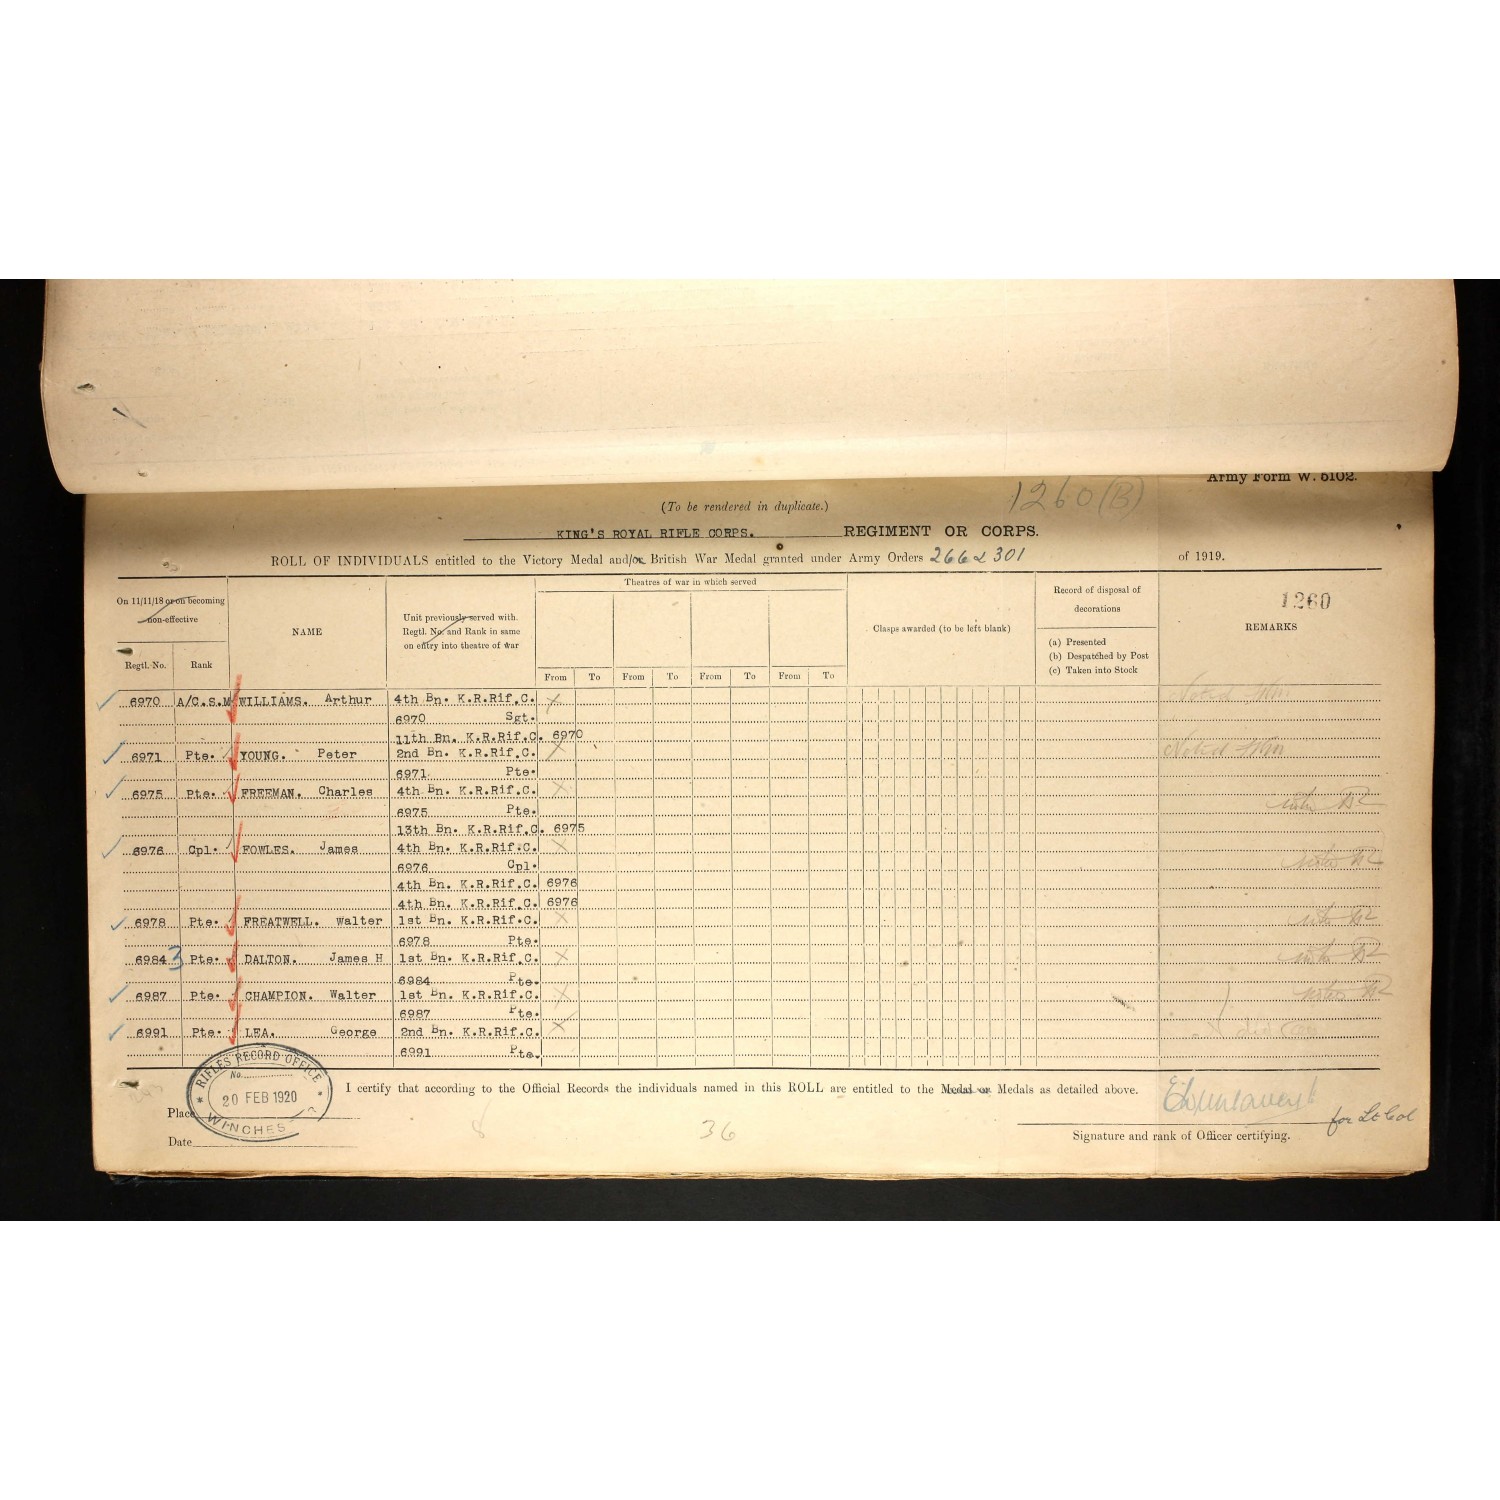 Army Form W. 5102.
1260 (B)
(To be rendered in duplicate.)
KING'S ROYAL RIFLE CORPS. REGIMENT OR CORPS.
ROLL OF INDIVIDUALS entitled to the Victory Medal and/or British War Medal granted under Army Orders 266 & 301 of 1919.
On 11/11/18 or on becoming non-effective
Regtl. No. Rank
NAME
Unit previously served with.
Regtl. No. and Rank in same
on entry into theatre of war
Theatres of war in which served
From To From To From To From To
Clasps awarded (to be left blank)
Record of disposal of
decorations
(a) Presented
(b) Despatched by Post
(c) Taken into Stock
1260
REMARKS
6970 A/C.S.M WILLIAMS. Arthur 4th Bn. K.R.Rif.C. X Noted
6970 Sgt.
11th Bn. K.R.Rif.C. 6970
6971 Pte. YOUNG. Peter 2nd Bn. K.R.Rif.C. X Noted
6971 Pte.
6975 Pte. FREEMAN. Charles 4th Bn. K.R.Rif.C. X
6975 Pte.
13th Bn. K.R.Rif.C. 6975
6976 Cpl. FOWLES. James 4th Bn. K.R.Rif.C. X
6976 Cpl.
4th Bn. K.R.Rif.C. 6976
4th Bn. K.R.Rif.C. 6976
6978 Pte. FREATWELL. Walter 1st Bn. K.R.Rif.C. X
6978 Pte.
6984 3 Pte. DALTON. James H 1st Bn. K.R.Rif.C. X
6984 Pte.
6987 Pte. CHAMPION. Walter 1st Bn. K.R.Rif.C. X
6987 Pte.
6991 Pte. LEA. George 2nd Bn. K.R.Rif.C. X
6991 Pte.
RIFLES RECORD OFFICE
No.
20 FEB 1920
WINCHES
I certify that according to the Official Records the individuals named in this ROLL are entitled to the Medal or Medals as detailed above.
Place
Date
36
for Lt Col
Signature and rank of Officer certifying.